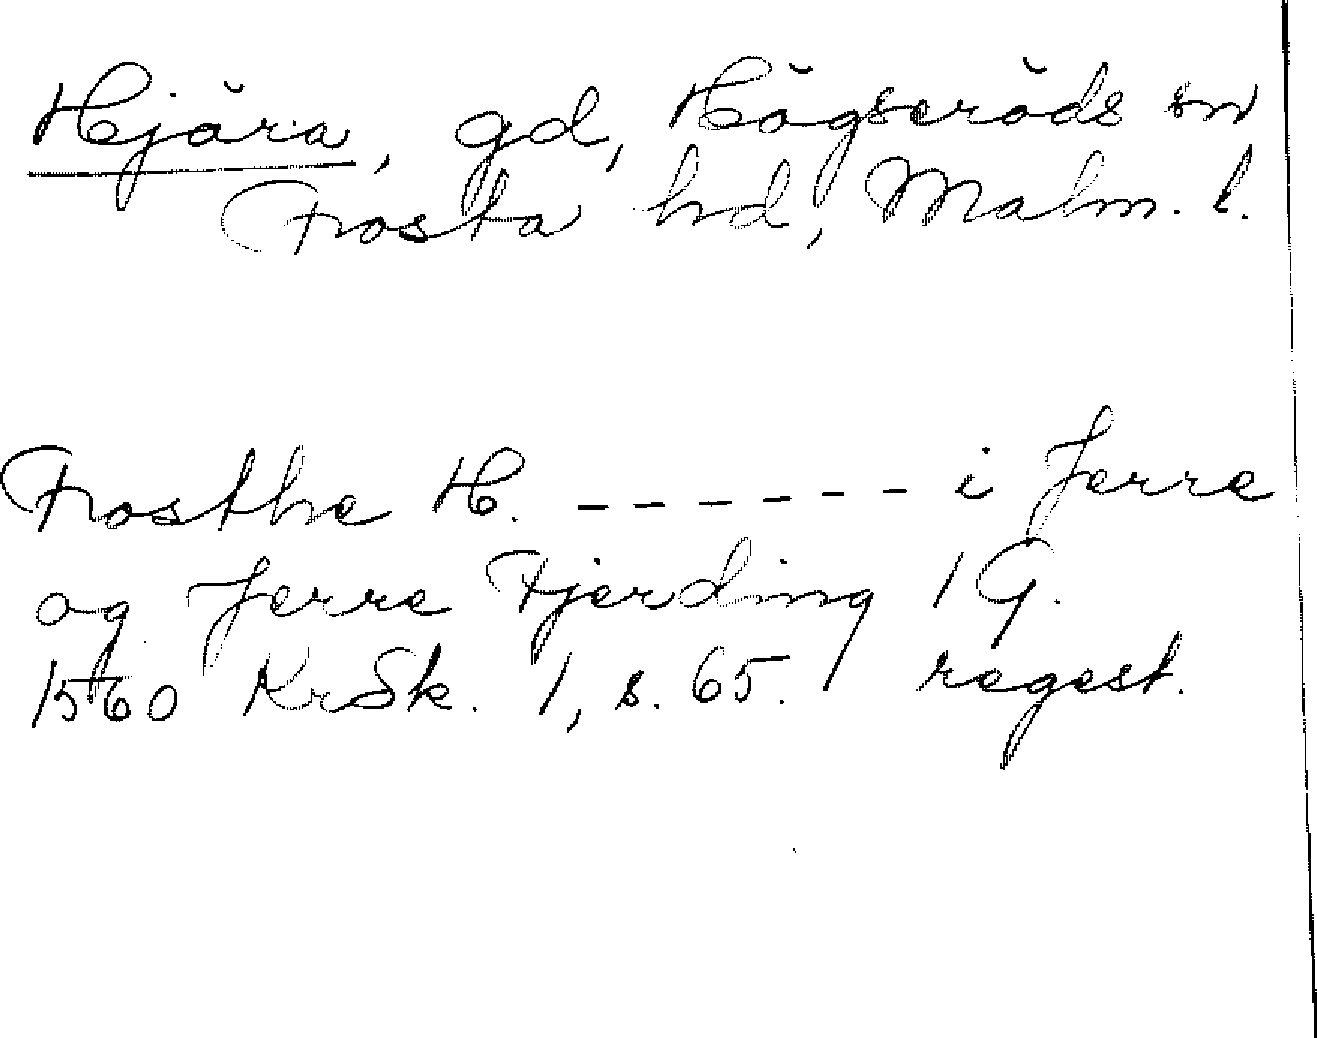 Hjära, gd, Högseröds sn
Frosta hd, Malm. l.
Frosthe H. ------ i Jerre
og Jerre Fjerding 1 G.
1560 KrSk. 1, s. 65. regest.